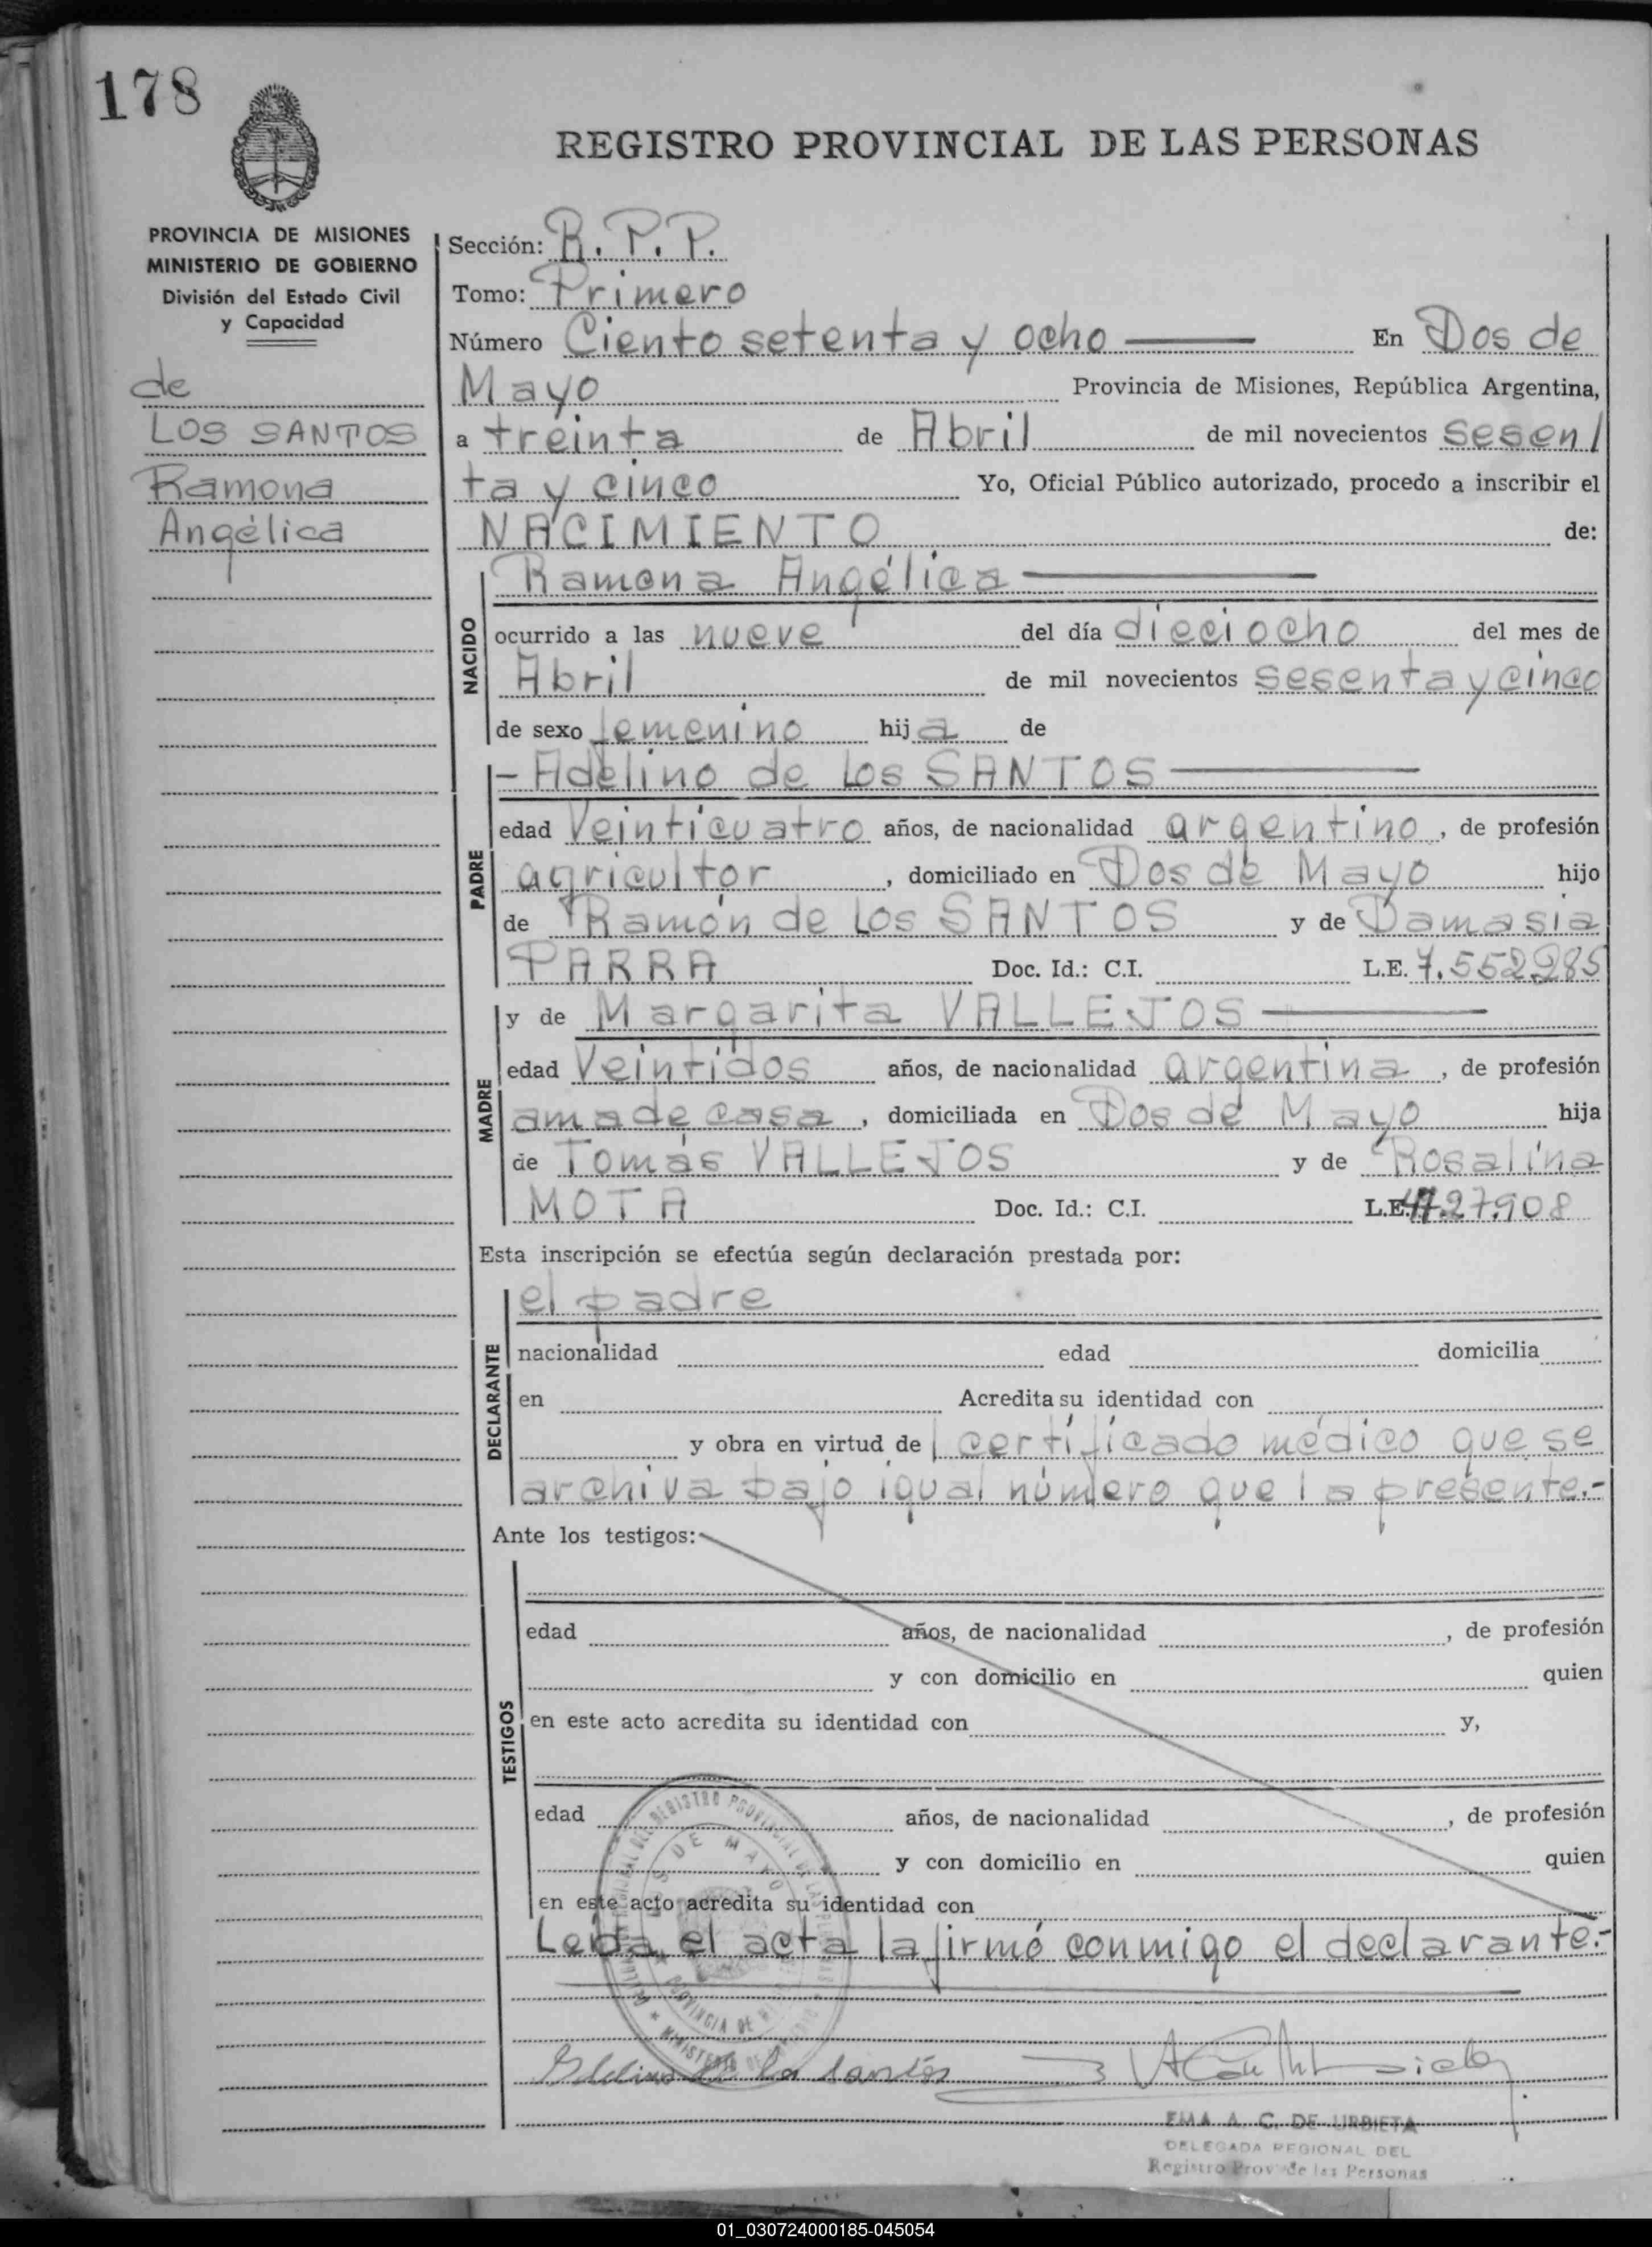 178
REGISTRO PROVINCIAL DE LAS PERSONAS
PROVINCIA DE MISIONES
MINISTERIO DE GOBIERNO
División del Estado Civil
y Capacidad
de
LOS SANTOS
Ramona
Angélica
Sección: R. P. P.
Tomo: Primero
Número Ciento setenta y ocho — En Dos de
Mayo Provincia de Misiones, República Argentina,
a treinta de Abril de mil novecientos sesen/
ta y cinco Yo, Oficial Público autorizado, procedo a inscribir el
NACIMIENTO de:
NACIDO
Ramona Angélica —
ocurrido a las nueve del día dieciocho del mes de
Abril de mil novecientos sesenta y cinco
de sexo femenino hija de
PADRE
- Adelino de los SANTOS —
edad Veinticuatro años, de nacionalidad argentino, de profesión
agricultor, domiciliado en Dos de Mayo hijo
de Ramón de los SANTOS y de Damasia
PARRA Doc. Id.: C.I. L.E. 7.552.285
MADRE
y de Margarita VALLEJOS —
edad Veintidos años, de nacionalidad argentina, de profesión
ama de casa, domiciliada en Dos de Mayo hija
de Tomás VALLEJOS y de Rosalina
MOTA Doc. Id.: C.I. L.E. 27.908
Esta inscripción se efectúa según declaración prestada por:
DECLARANTE
el padre
nacionalidad edad domicilia
en Acredita su identidad con
y obra en virtud de certificado médico que se
archiva bajo igual número que la presente.-
Ante los testigos:
TESTIGOS
edad años, de nacionalidad , de profesión
y con domicilio en quien
en este acto acredita su identidad con y,
edad años, de nacionalidad , de profesión
y con domicilio en quien
en este acto acredita su identidad con
Leída el acta la firmó conmigo el declarante.-
DEL REGISTRO PROVINCIAL DE LAS PERSONAS
DOS DE MAYO
PROVINCIA DE
MINISTERIO DE
de los santos
EMA A. C. DE URBIETA
DELEGADA REGIONAL DEL
Registro Prov de las Personas
01_030724000185-045054